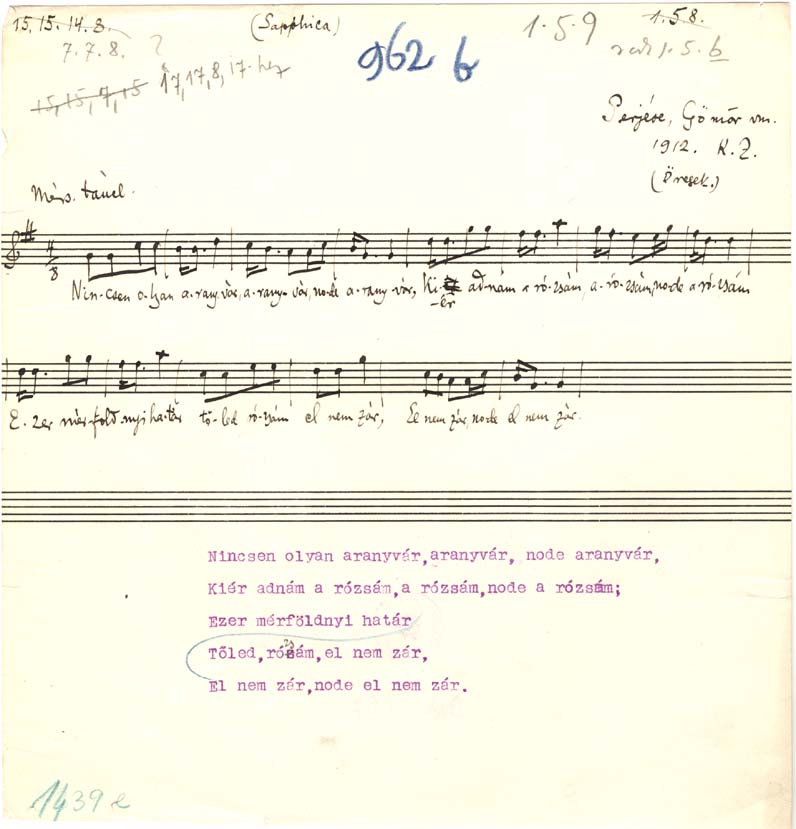 15, 15. 14. 8.
(Sapphica)
1.5.9
1.5.8.
7. 7. 8. ?
1.5.6
962 b
15, 15, 7, 15 17, 17, 8, 17-hez
Perjése, Gömör vm.
1912. K. Z.
(Öregek.)
Mérs. táncl.
4
8
Nin-csen o-lyan a-rany-vár, a-rany-vár, no-de a-rany-vár, Ki-ér ad-nám a ró-zsám, a ró-zsám, no-de a ró-zsám
E-zer mér-föld-nyi ha-tár tő-led ró-zsám el nem zár, El nem zár, no-de el nem zár.
Nincsen olyan aranyvár,aranyvár, node aranyvár,
Kiér adnám a rózsám,a rózsám,node a rózsám;
Ezer mérföldnyi határ
Tőled,rózsám,el nem zár,
El nem zár,node el nem zár.
1439 e